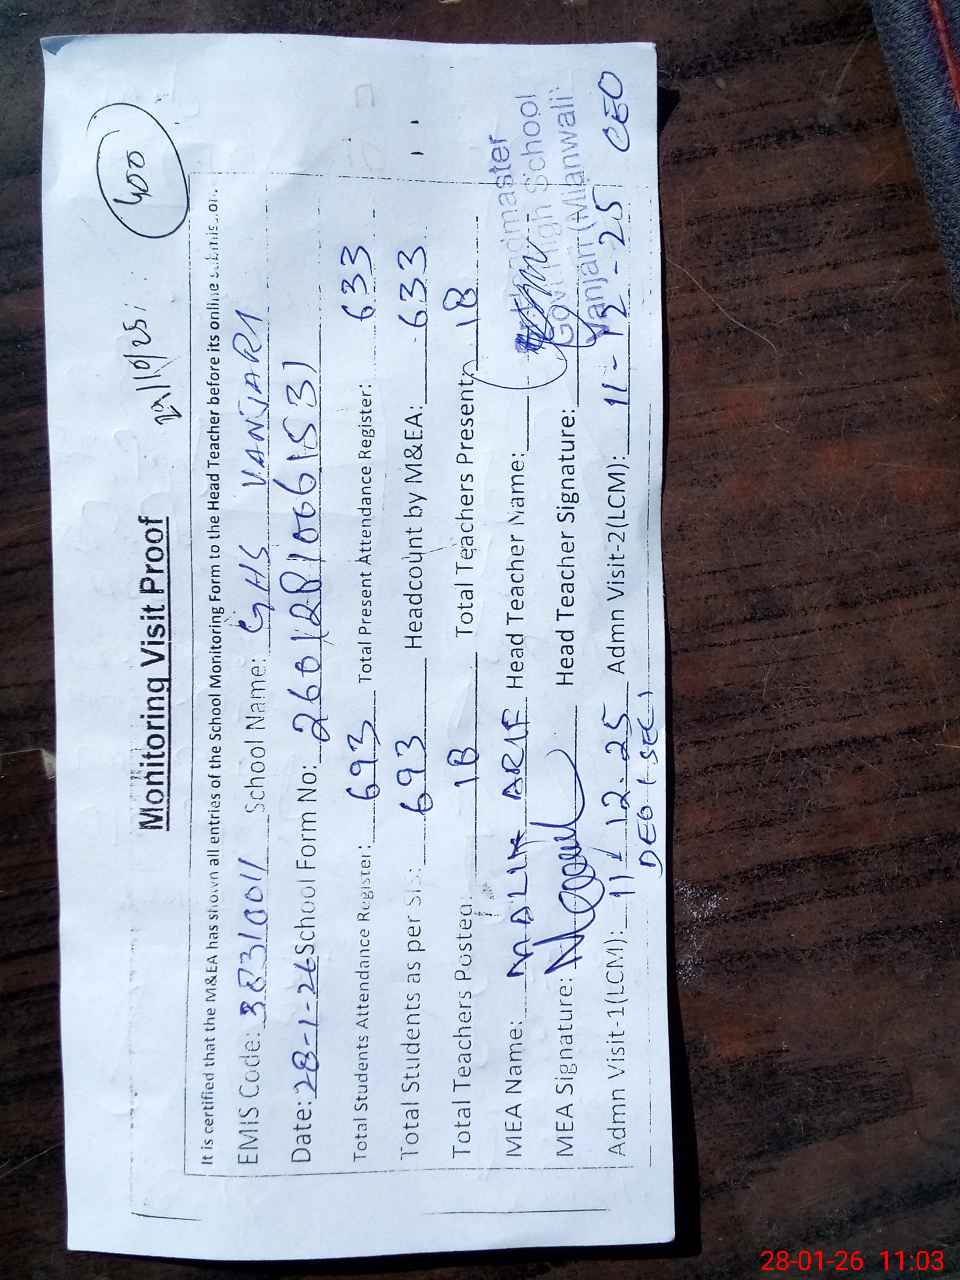 400
Monitoring Visit Proof
29/10/25
It is certified that the M&EA has shown all entries of the School Monitoring Form to the Head Teacher before its online submission.
EMIS Code: 38310011 School Name: GHS VANJARI
Date: 28-1-26 School Form No: 26012810661531
Total Students Attendance Register: 693 Total Present Attendance Register: 633
Total Students as per SIS: 693 Headcount by M&EA: 633
Total Teachers Posted: 18 Total Teachers Present: 18
MEA Name: MALIK ARIF Head Teacher Name:
MEA Signature: Head Teacher Signature:
Headmaster
Govt High School
Vanjari (Mianwali)
Admn Visit-1(LCM): 11-12-25 Admn Visit-2(LCM): 11-12-25 CEO
DEO (SEC)
28-01-26 11:03